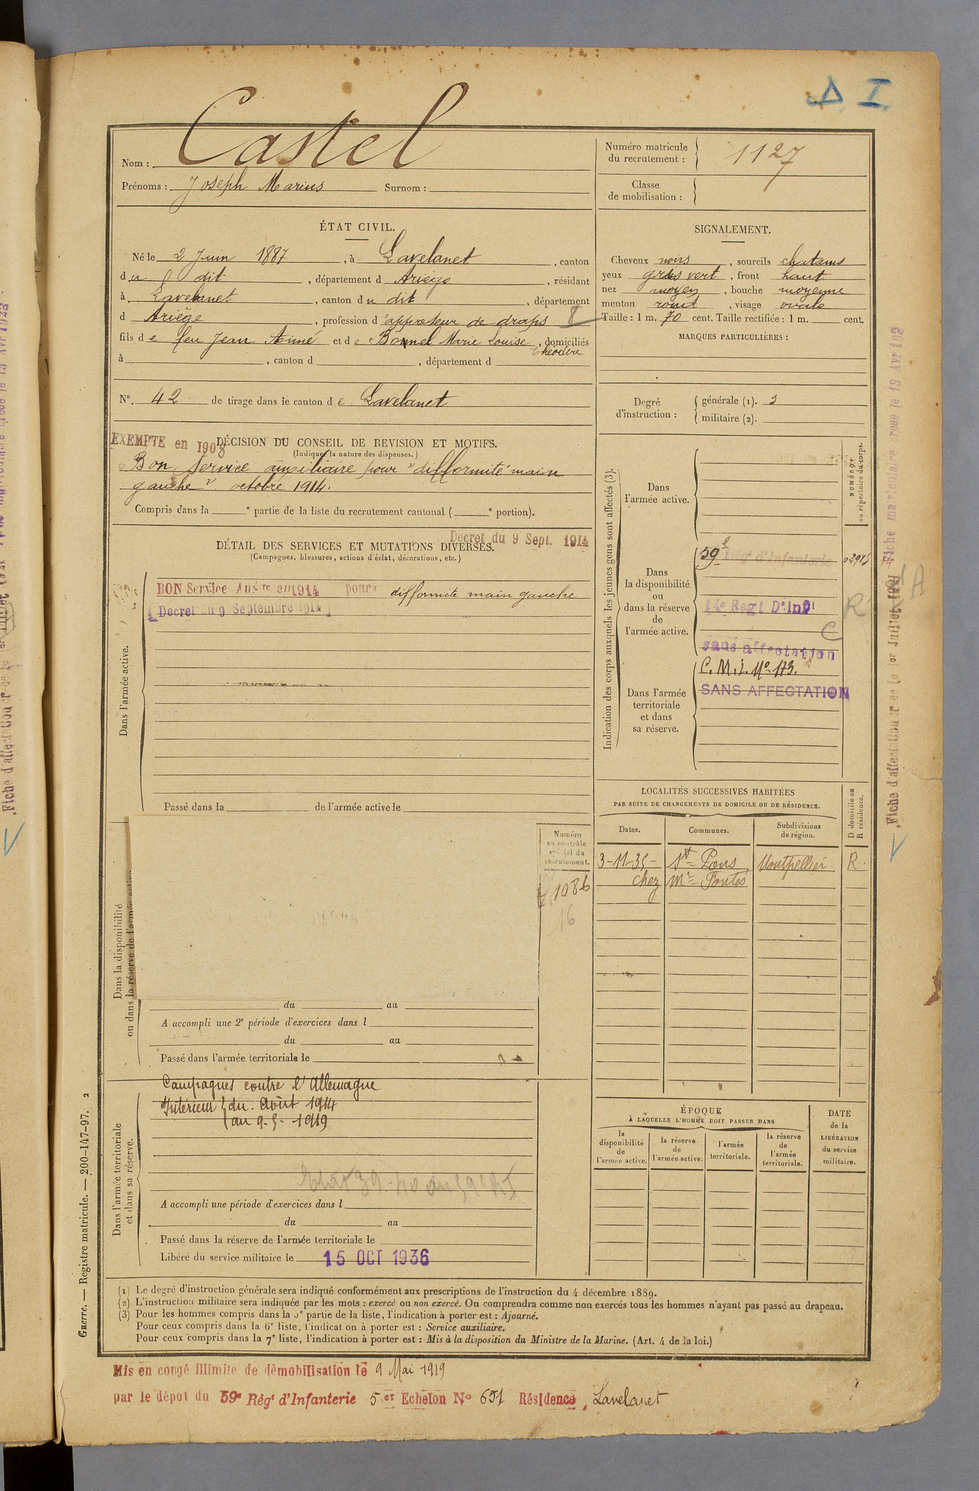 Δ I
Castel
Nom :
Prénoms : Joseph Marius Surnom :
Numéro matricule
du recrutement : 1127
Classe
de mobilisation :
ÉTAT CIVIL.
Né le 2 Juin 1887, à Lavelanet, canton
du dit, département d Ariège, résidant
à Lavelanet, canton du dit, département
d Ariège, profession d'appreteur de draps
fils de feu Jean Aimé et de Bonnel Marie Louise, domiciliés
Théodore
à , canton d , département d
N° 42 de tirage dans le canton de Lavelanet
SIGNALEMENT.
Cheveux noirs, sourcils chatains
yeux gris vert, front haut
nez moyen, bouche moyenne
menton rond, visage ovale
Taille : 1 m. 70 cent. Taille rectifiée : 1 m. cent.
MARQUES PARTICULIÈRES :
Degré
d'instruction :
générale (1). 3
militaire (2).
EXEMPTE en 1908
DÉCISION DU CONSEIL DE REVISION ET MOTIFS.
(Indiquer la nature des dispenses.)
Bon Service auxiliaire pour "difformité main
gauche" octobre 1914.
Compris dans la e partie de la liste du recrutement cantonal ( e portion).
Décret du 9 Sept. 1914
DÉTAIL DES SERVICES ET MUTATIONS DIVERSES.
(Campagnes, blessures, actions d'éclat, décorations, etc.)
BON Service Auxre en 1914 pour difformité main gauche
Décret du 9 Septembre 1914
Dans l'armée active.
Passé dans la de l'armée active le
Indication des corps auxquels les jeunes gens sont affectés (3).
NUMÉROS
au répertoire du corps.
Dans
l'armée active.
Dans
la disponibilité
ou
dans la réserve
de
l'armée active.
59e Régt d'Infanterie
Régt D'Infie
sans affectation
R
C
A
Dans l'armée
territoriale
et dans
sa réserve.
C. M. I. N° 173.
SANS AFFECTATION
LOCALITÉS SUCCESSIVES HABITÉES
PAR SUITE DE CHANGEMENTS DE DOMICILE OU DE RÉSIDENCE.
D domicile ou
R résidence.
Dates. Communes. Subdivisions
de région.
3-11-35- St Pons Montpellier R
chez Mr Pontès
Numéro
au contrôle
spécial du
recrutement.
1086
16
Dans la disponibilité
ou dans la réserve de l'armée active
du au
A accompli une 2e période d'exercices dans l
du au
Passé dans l'armée territoriale le
Campagnes contre l'Allemagne
Intérieur du Août 1914
au 9-5-1919
Dans l'armée territoriale
et dans sa réserve.
A accompli une période d'exercices dans l
du au
Passé dans la réserve de l'armée territoriale le
Libéré du service militaire le 15 OCT 1936
ÉPOQUE
À LAQUELLE L'HOMME DOIT PASSER DANS
la
disponibilité
de
l'armée active.
la réserve
de
l'armée active.
l'armée
territoriale.
la réserve
de
l'armée
territoriale.
DATE
de la
LIBÉRATION
du service
militaire.
(1) Le degré d'instruction générale sera indiqué conformément aux prescriptions de l'instruction du 4 décembre 1889.
(2) L'instruction militaire sera indiquée par les mots : exercé ou non exercé. On comprendra comme non exercés tous les hommes n'ayant pas passé au drapeau.
(3) Pour les hommes compris dans la 5e partie de la liste, l'indication à porter est : Ajourné.
Pour ceux compris dans la 6e liste, l'indication à porter est : Service auxiliaire.
Pour ceux compris dans la 7e liste, l'indication à porter est : Mis à la disposition du Ministre de la Marine. (Art. 4 de la loi.)
Guerre. — Registre matricule. — 200-147-97. 2
Mis en congé illimité de démobilisation le 9 Mai 1919
par le dépôt du 59e Régt d'Infanterie 5e Echelon N° 651 Résidence, Lavelanet